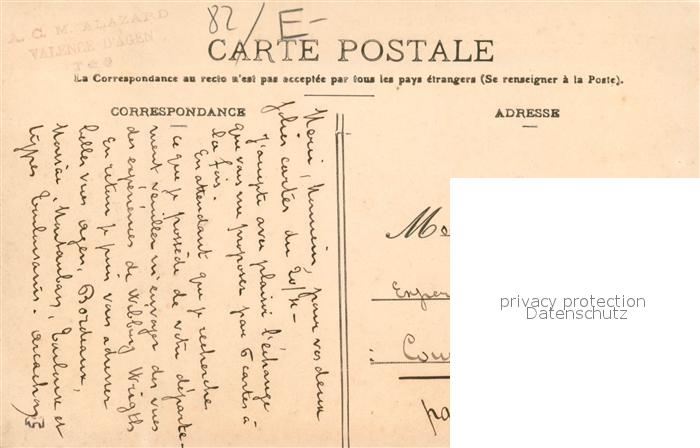 82/E-
A. C. M. ALAZARD
VALENCE D'AGEN
T & G
CARTE POSTALE
La Correspondance au recto n'est pas acceptée par tous les pays étrangers (Se renseigner à la Poste).
CORRESPONDANCE
ADRESSE
Merci, Monsieur, pour vos deux
jolies cartes du 20/X-
J'accepte avec plaisir l'échange
que vous me proposez par 6 cartes à
la fois.
En attendant que je recherche
ce que je possède de votre départe-
ment veuillez m'envoyer des vues
des expériences de Wilbury Wright
En retour je puis vous adresser
belles vues Agen, Bordeaux,
Moissac, Montauban, Toulouse et
types Toulousains. Arcachon
Mo
Exper
Cou
pa
privacy protection
Datenschutz